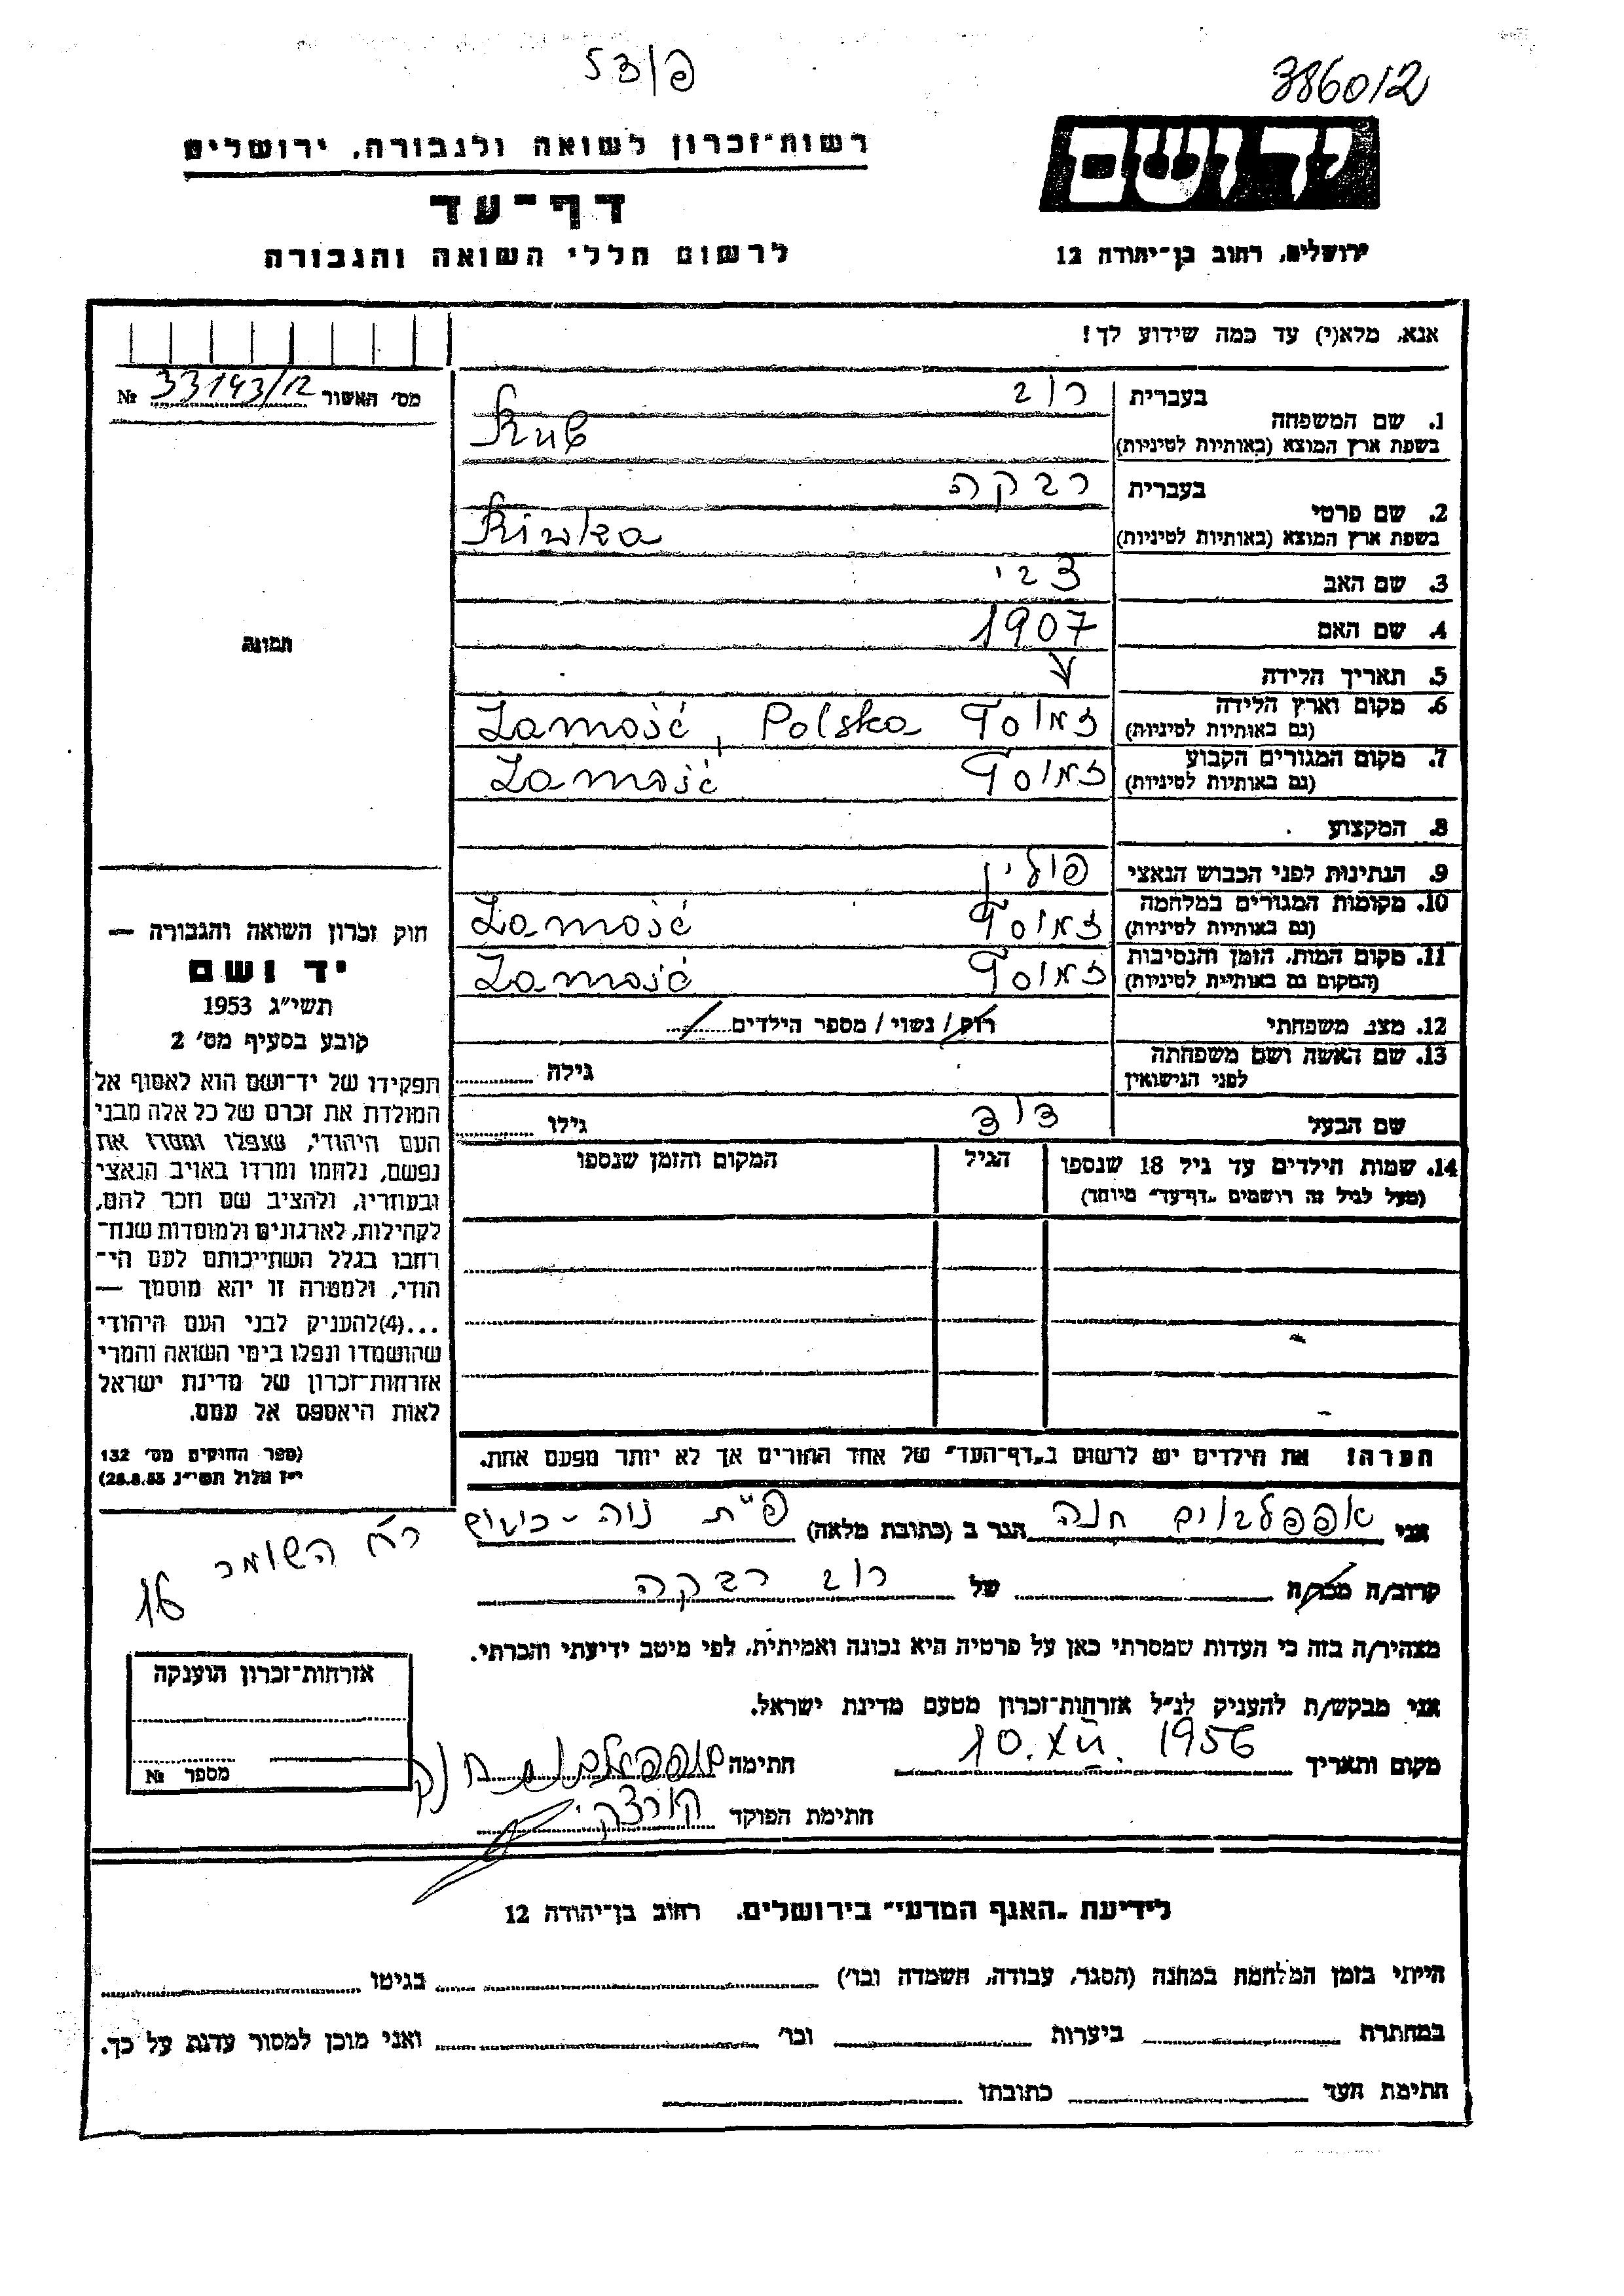 53/פ
38601/2
יד ושם
רשות־זכרון לשואה ולגבורה, ירושלים
דף־עד
לרשום חללי השואה והגבורה
ירושלים, רחוב בן־יהודה 12
אנא, מלא(י) עד כמה שידוע לך!
מס׳ האשור 33193/12 №
תמונה
1. שם המשפחה בעברית רוב
בשפת ארץ המוצא (באותיות לטיניות) Rub
2. שם פרטי בעברית רבקה
בשפת ארץ המוצא (באותיות לטיניות) Riwka
3. שם האב צבי
4. שם האם 1907
5. תאריך הלידה
6. מקום וארץ הלידה זמוסץ Zamość, Polska
(גם באותיות לטיניות)
7. מקום המגורים הקבוע זמוסץ Zamość
(גם באותיות לטיניות)
8. המקצוע
9. הנתינות לפני הכבוש הנאצי פולין
10. מקומות המגורים במלחמה זמוסץ Zamość
(גם באותיות לטיניות)
11. מקום המות, הזמן והנסיבות זמוסץ Zamość
(המקום גם באותיות לטיניות)
12. מצב משפחתי רוק/ נשוי/ מספר הילדים
13. שם האשה ושם משפחתה גילה
לפני הנישואין
שם הבעל דוד גילו
14. שמות הילדים עד גיל 18 שנספו הגיל המקום והזמן שנספו
(מעל לגיל זה רושמים „דף־עד״ מיוחד)
חוק זכרון השואה והגבורה —
יד ושם
תשי״ג 1953
קובע בסעיף מס׳ 2
תפקידו של יד־ושם הוא לאסוף אל
המולדת את זכרם של כל אלה מבני
העם היהודי, שנפלו ומסרו את
נפשם, נלחמו ומרדו באויב הנאצי
ובעוזריו, ולהציב שם וזכר להם,
לקהילות, לארגונים ולמוסדות שנח־
רבו בגלל השתייכותם לעם הי־
הודי, ולמטרה זו יהא מוסמך —
...(4)להעניק לבני העם היהודי
שהושמדו ונפלו בימי השואה והמרי
אזרחות־זכרון של מדינת ישראל
לאות היאספם אל עמם.
(ספר החוקים מס׳ 132
י״ז אלול תשי״ג 28.8.53)
הערה! את הילדים יש לרשום ב„דף־העד״ של אחד ההורים אך לא יותר מפעם אחת.
אני אפפלבוים חנה הגר ב (כתובת מלאה) פ״ת נוה-כיטוש
רח׳ השומר 16
קרוב/ה מכר/ה של רוב רבקה
מצהיר/ה בזה כי העדות שמסרתי כאן על פרטיה היא נכונה ואמיתית, לפי מיטב ידיעתי והכרתי.
אני מבקש/ת להעניק לנ״ל אזרחות־זכרון מטעם מדינת ישראל.
מקום ותאריך 10.XII. 1956 חתימה
חתימת הפוקד
אזרחות־זכרון הוענקה
מספר №
לידיעת „האגף המדעי״ בירושלים, רחוב בן־יהודה 12
הייתי בזמן המלחמה במחנה (הסגר, עבודה, השמדה וכו׳) בגיטו
במחתרת ביערות וכו׳ ואני מוכן למסור עדות על כך.
חתימת העד כתובתו